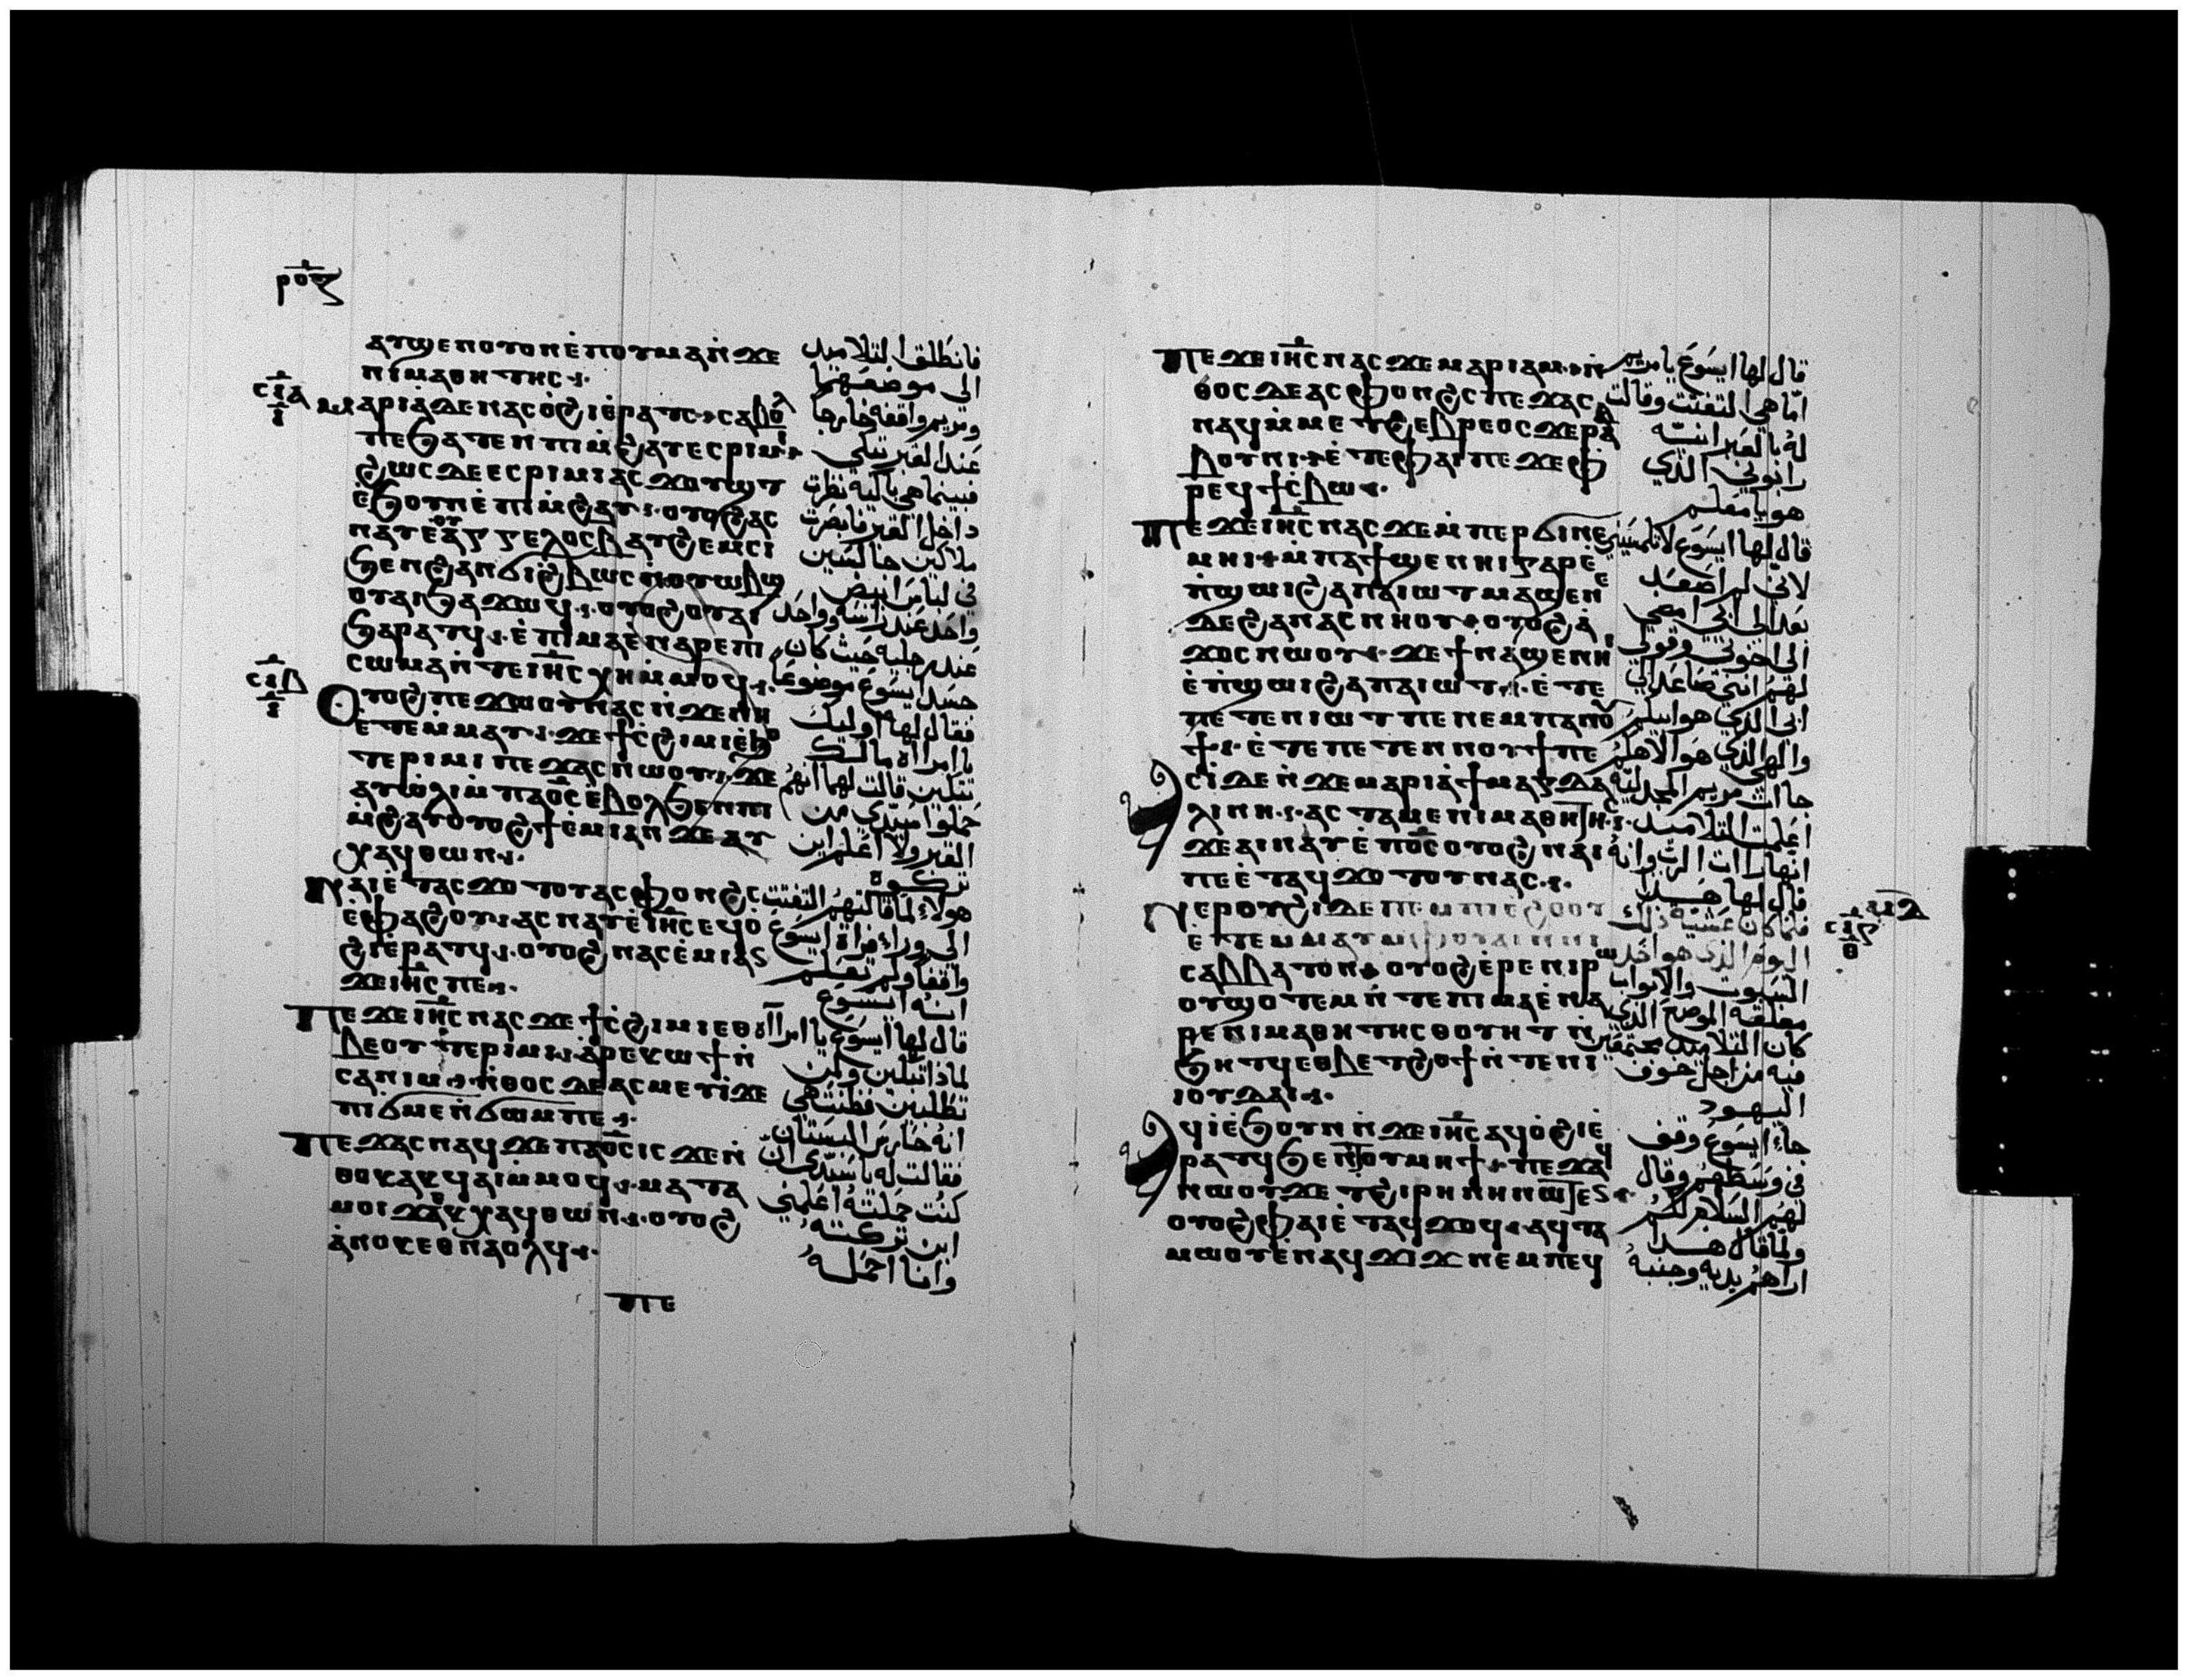 ⲣⲟⲍ
ⲁⲩϣⲉⲛⲟⲩⲟⲛⲉ̀ⲡⲟⲩⲙⲁⲛ̀ϫⲉ
ⲛⲓⲙⲁⲑⲏⲧⲏⲥ
ⲥⲓⲁ
ⲓ
ⲙⲁⲣⲓⲁ̀ⲇⲉⲛⲁⲥⲟ̀ϩⲓⲉ̀ⲣⲁⲧⲥ ⲥⲁⲃⲟⲗ
ⲡⲉϧⲁⲧⲉⲛⲡⲓⲙ̀ϩⲁⲩⲉⲥⲣⲓⲙⲓ
ϩⲱⲥⲇⲉⲉⲥⲣⲓⲙⲓⲁⲥϫⲟⲩϣⲧ
ⲉ̀ϧⲟⲩⲛⲉ̀ⲡⲓⲙ̀ϩⲁⲩ ⲟⲩⲟϩⲁⲥ
ⲛⲁⲩⲉ̀ⲁⲅⲅⲉⲗⲟⲥⲃ̅ⲁⲩϩⲉⲙⲥⲓ
ϧⲉⲛϩⲁⲛϭⲓϩⲃⲱⲥⲛ̀ⲟⲩⲱⲃϣ
ⲟⲩⲁⲓϧⲁϫⲱϥ ⲟⲩⲟϩⲟⲩⲁⲓ
ϧⲁⲣⲁⲧϥ ⲉ̀ⲡⲓⲙⲁⲉ̀ⲛⲁⲣⲉⲡⲓ
ⲥⲱⲙⲁⲛ̀ⲧⲉⲓⲏ̅ⲥⲭⲏⲙ̀ⲙⲟϥ
ⲥⲓⲃ
ⲓ
ⲟⲩⲟϩⲡⲉϫⲱⲟⲩⲛⲁⲥⲛ̀ϫⲉⲛⲏ
ⲉ̀ⲧⲉⲙ̀ⲙⲁⲩ ϫⲉϯⲥ̀ϩⲓⲙⲓⲉ̀ⲑⲃⲉⲟ
ⲧⲉⲣⲓⲙⲓ ⲡⲉϫⲁⲥⲛⲱⲟⲩ ϫⲉ
ⲁⲩⲱ̀ⲗⲓⲙ̀ⲡⲁⲟ̅ⲥⲉ̀ⲃⲟⲗϧⲉⲛⲡⲓ
ⲙ̀ϩⲁⲩⲟⲩⲟϩϯⲉ̀ⲙⲓⲁⲛϫⲉⲁⲩ
ⲭⲁϥⲑⲱⲛ
ⲛⲁⲓⲉ̀ⲧⲁⲥϫⲟⲧⲟⲩⲁⲥⲫⲟⲛϩⲥ
ⲉ̀ⲫⲁϩⲟⲩ ⲁⲥⲛⲁⲩⲉ̀ⲓⲏ̅ⲥⲉϥⲟ̀
ϩⲓⲉ̀ⲣⲁⲧϥ ⲟⲩⲟϩⲛⲁⲥⲉ̀ⲙⲓⲁⲛ
ϫⲉⲓⲏ̅ⲥⲡⲉ
ⲡⲉϫⲉⲓⲏ̅ⲥⲛⲁⲥϫⲉϯⲥ̀ϩⲓⲙⲓⲉⲑ
ⲃⲉⲟⲩⲧⲉⲣⲓⲙⲓ ⲁ̀ⲣⲉⲕⲱϯⲛ̀
ⲥⲁⲛⲓⲙ ⲛ̀ⲑⲟⲥⲇⲉⲁⲥⲙⲉⲩⲓ̀ϫⲉ
ⲡⲓϭⲙⲉⲛ̀ϭⲱⲙⲡⲉ
ⲡⲉϫⲁⲥⲛⲁϥϫⲉⲡⲁⲟ̅ⲥⲓⲥϫⲉⲛ̀
ⲑⲟⲕⲁⲕϥⲁⲓⲙ̀ⲙⲟϥ ⲙⲁⲧⲁ
ⲙⲟⲓϫⲉⲁⲕⲭⲁϥⲑⲱⲛ ⲟⲩⲟϩ
ⲁ̀ⲛⲟⲕⲉⲑⲛⲁⲟⲗϥ
ⲡⲉ
فانطلقا التلاميد
الى موضعهما
ومريم واقفه خارجا
عند القبر تبكي
فبينما هي باكيه نظرت
داخل القبر فابصرت
ملاكين جالسين
في لباس ابيض
واحد عند راسه وواحد
عند رجليه حيث كان
جسد ايسوع موضوعا
فقال لها اوليك
يا امراه ما لك
تبكين قالت لهما انهم
حملوا سيدي من
القبر ولا اعلم اين
تركوه
هولاء لما قالتهم التفتت
الى وراء فراة ايسوع
واقفا ولم تعلم
انه ايسوع
قال لها ايسوع يا امراه
لماذا تبكين ولمن
تطلبين فظنت هي
انه حارس البستان
فقالت له يا سيدي ان
كنت حملته اعلمني
اين تركته
وانا احمله
ⲡⲉϫⲉⲓⲏ̅ⲥⲛⲁⲥϫⲉⲙⲁⲣⲓⲁⲙ ⲛ̀
ⲑⲟⲥⲇⲉⲁⲥⲫⲟⲛϩⲥⲡⲉϫⲁⲥ
ⲛⲁϥⲙ̀ⲙⲉⲧϩⲉⲃⲣⲉⲟⲥϫⲉⲣⲁ
ⲃⲃⲟⲩⲛⲓ ⲉ̀ⲧⲉⲫⲁⲓⲡⲉϫⲉⲫ
ⲣⲉϥϯⲥ̀ⲃⲱ
ⲡⲉϫⲉⲓⲏ̅ⲥⲛⲁⲥϫⲉⲙ̀ⲡⲉⲣϭⲓⲛⲉ
ⲙⲏⲓ ⲙ̀ⲡⲁϯϣⲉⲛⲏⲓⲅⲁⲣⲉ̀
ⲡ̀ϣⲱⲓϩⲁⲡⲁⲓⲱⲧⲙⲁϣⲉⲛⲉ
ⲇⲉϩⲁⲛⲁⲥⲛⲏⲟⲩ ⲟⲩⲟϩⲁ̀
ϫⲟⲥⲛⲱⲟⲩ ϫⲉϯⲛⲁϣⲉⲛⲏⲓ
ⲉ̀ⲡ̀ϣⲱⲓϩⲁⲡⲁⲓⲱⲧ ⲉ̀ⲧⲉ
ⲡⲉⲧⲉⲛⲓⲱⲧⲡⲉⲛⲉⲙⲡⲁⲛⲟⲩ
ϯ ⲉ̀ⲧⲉⲡⲉⲧⲉⲛⲛⲟⲩϯⲡⲉ
ⲁⲥⲓ̀ⲇⲉⲛ̀ϫⲉⲙⲁⲣⲓⲁ̀ϯⲙⲁⲅⲇⲁ
ⲗⲓⲛⲏ ⲁⲥⲧⲁⲙⲉⲛⲓⲙⲁⲑⲏⲧⲏⲥ
ϫⲉⲁⲓⲛⲁⲩⲉ̀ⲡⲟ̅ⲥⲟⲩⲟϩⲛⲁⲓ
ⲛⲉⲉ̀ⲧⲁϥϫⲟⲧⲟⲩⲛⲁⲥ
ⲛⲉⲣⲟⲩϩⲓⲇⲉⲡⲉⲙ̀ⲡⲓⲉϩⲟⲟⲩ
ⲉ̀ⲧⲉⲙ̀ⲙⲁⲩ
ⲥⲁⲃⲃⲁⲧⲟⲛ ⲟⲩⲟϩⲉ̀ⲣⲉⲛⲓⲣⲱ
ⲟⲩϣⲟⲧⲉⲙⲛ̀ⲧⲉⲡⲓⲙⲁⲉ̀ⲛⲁ
ⲣⲉⲛⲓⲙⲁⲑⲏⲧⲏⲥⲑⲟⲩⲏⲧⲛ̀
ϧⲏⲧϥⲉⲑⲃⲉⲧϩⲟϯⲛ̀ⲧⲉⲛⲓ
ⲓⲟⲩⲇⲁⲓ
ⲁϥⲓ̀ⲉ̀ϧⲟⲩⲛⲛ̀ϫⲉⲓⲏ̅ⲥⲁϥⲟ̀ϩⲓⲉ̀
ⲣⲁⲧϥϧⲉⲛⲧⲟⲩⲙⲏϯ ⲡⲉϫⲁϥ
ⲛⲱⲟⲩϫⲉⲧϩⲓⲣⲏⲛⲏⲛⲱⲧⲉⲛ
ⲟⲩⲟϩⲫⲁⲓⲉ̀ⲧⲁϥϫⲟϥ ⲁϥⲧⲁ
ⲙⲱⲟⲩⲉ̀ⲛⲁϥϫⲓϫⲛⲉⲙⲡⲉϥ
قال لها ايسوع يا مريم
اما هي التفتت وقالت
له بالعبرانيه
رابوني الذي
هو يا معلم
قال لها ايسوع لا تلمسيني
لاني لم اصعد
بعد الى ابي امضي
الي اخوتي وقولي
لهم انني صاعد الي
ابي الذي هو ابيكم
والهي الذي هو الاهكم
جاات مريم المجدليه
اعلمت التلاميد
انها راات الرب وانه
قال لها هدا
فلما كان عشيه ذلك
اليوم الذي هو احد
السبوت والابواب
مغلقه الموضع الذي
كان التلاميد مجتمعين
فيه من اجل خوف
اليهود
جاء ايسوع وقف
في وسطهم وقال
لهم السلام لكم
ولما قال هدا
اراهم يديه وجنبه
ⲥⲓⲅ
ⲑ